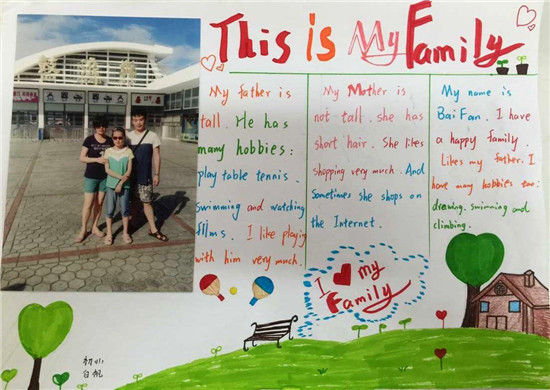 This is My Family
My father is
tall. He has
many hobbies:
play table tennis.
swimming and watching
films. I like playing
with him very much.
My Mother is
not tall. she has
short hair. She likes
shopping very much. And
Sometimes she shops on
the Internet.
My name is
Bai Fan. I have
a happy family.
Likes my father. I
have many hobbies too:
drawing. swimming and
climbing.
I my
Family
白帆